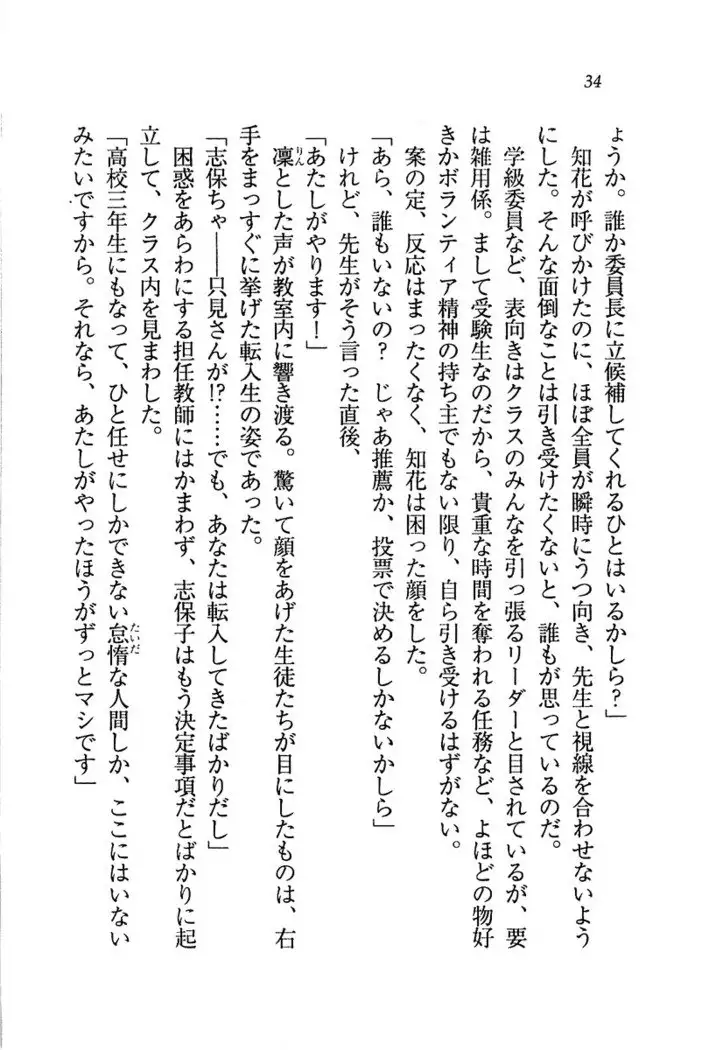 34
ょうか。誰か委員長に立候補してくれるひとはいるかしら？」
知花が呼びかけたのに、ほぼ全員が瞬時にうつ向き、先生と視線を合わせないよう
にした。そんな面倒なことは引き受けたくないと、誰もが思っているのだ。
学級委員など、表向きはクラスのみんなを引っ張るリーダーと目されているが、要
は雑用係。まして受験生なのだから、貴重な時間を奪われる任務など、よほどの物好
きかボランティア精神の持ち主でもない限り、自ら引き受けるはずがない。
案の定、反応はまったくなく、知花は困った顔をした。
「あら、誰もいないの？　じゃあ推薦か、投票で決めるしかないかしら」
けれど、先生がそう言った直後、
「あたしがやります！」
凜とした声が教室内に響き渡る。驚いて顔をあげた生徒たちが目にしたものは、右
りん
手をまっすぐに挙げた転入生の姿であった。
「志保ちゃ――只見さんが!?……でも、あなたは転入してきたばかりだし」
困惑をあらわにする担任教師にはかまわず、志保子はもう決定事項だとばかりに起
立して、クラス内を見まわした。
「高校三年生にもなって、ひと任せにしかできない怠惰な人間しか、ここにはいない
たいだ
みたいですから。それなら、あたしがやったほうがずっとマシです」